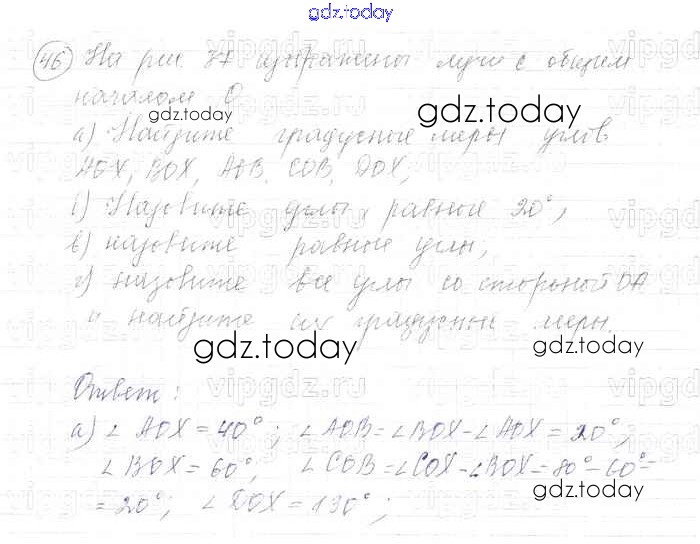 gdz.today
46 На рис 37 изображены лучи с общим
началом O
а) Найдите градусные меры углов
AOX, BOX, AOB, COB, DOX;
б) Назовите углы, равные 20°,
в) назовите равные углы;
г) назовите все углы со стороной OA
и найдите их градусные меры.
Ответ:
а) ∠ AOX = 40°; ∠ AOB = ∠ BOX - ∠ AOX = 20°;
∠ BOX = 60°; ∠ COB = ∠ COX - ∠ BOX = 80° - 60° =
= 20°; ∠ DOX = 130°;
gdz.today
gdz.today
gdz.today
gdz.today
gdz.today
gdz.today